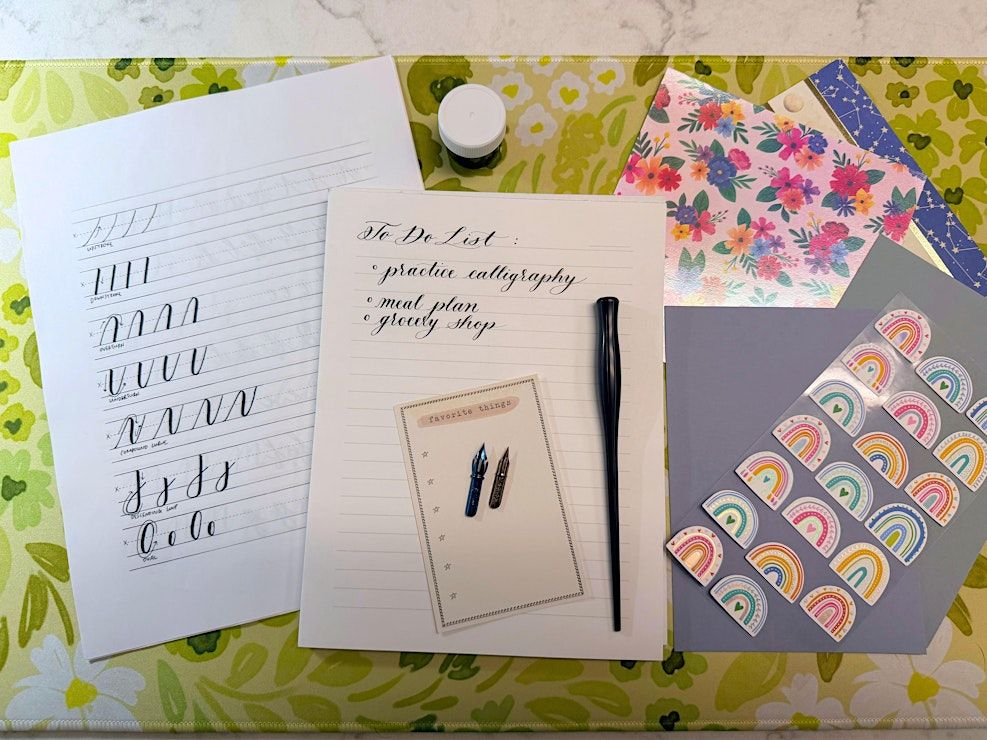 UPSTROKE
DOWNSTROKE
OVERTURN
UNDERTURN
COMPOUND CURVE
DESCENDING LOOP
OVAL
To Do List :
practice calligraphy
meal plan
grocery shop
favorite things